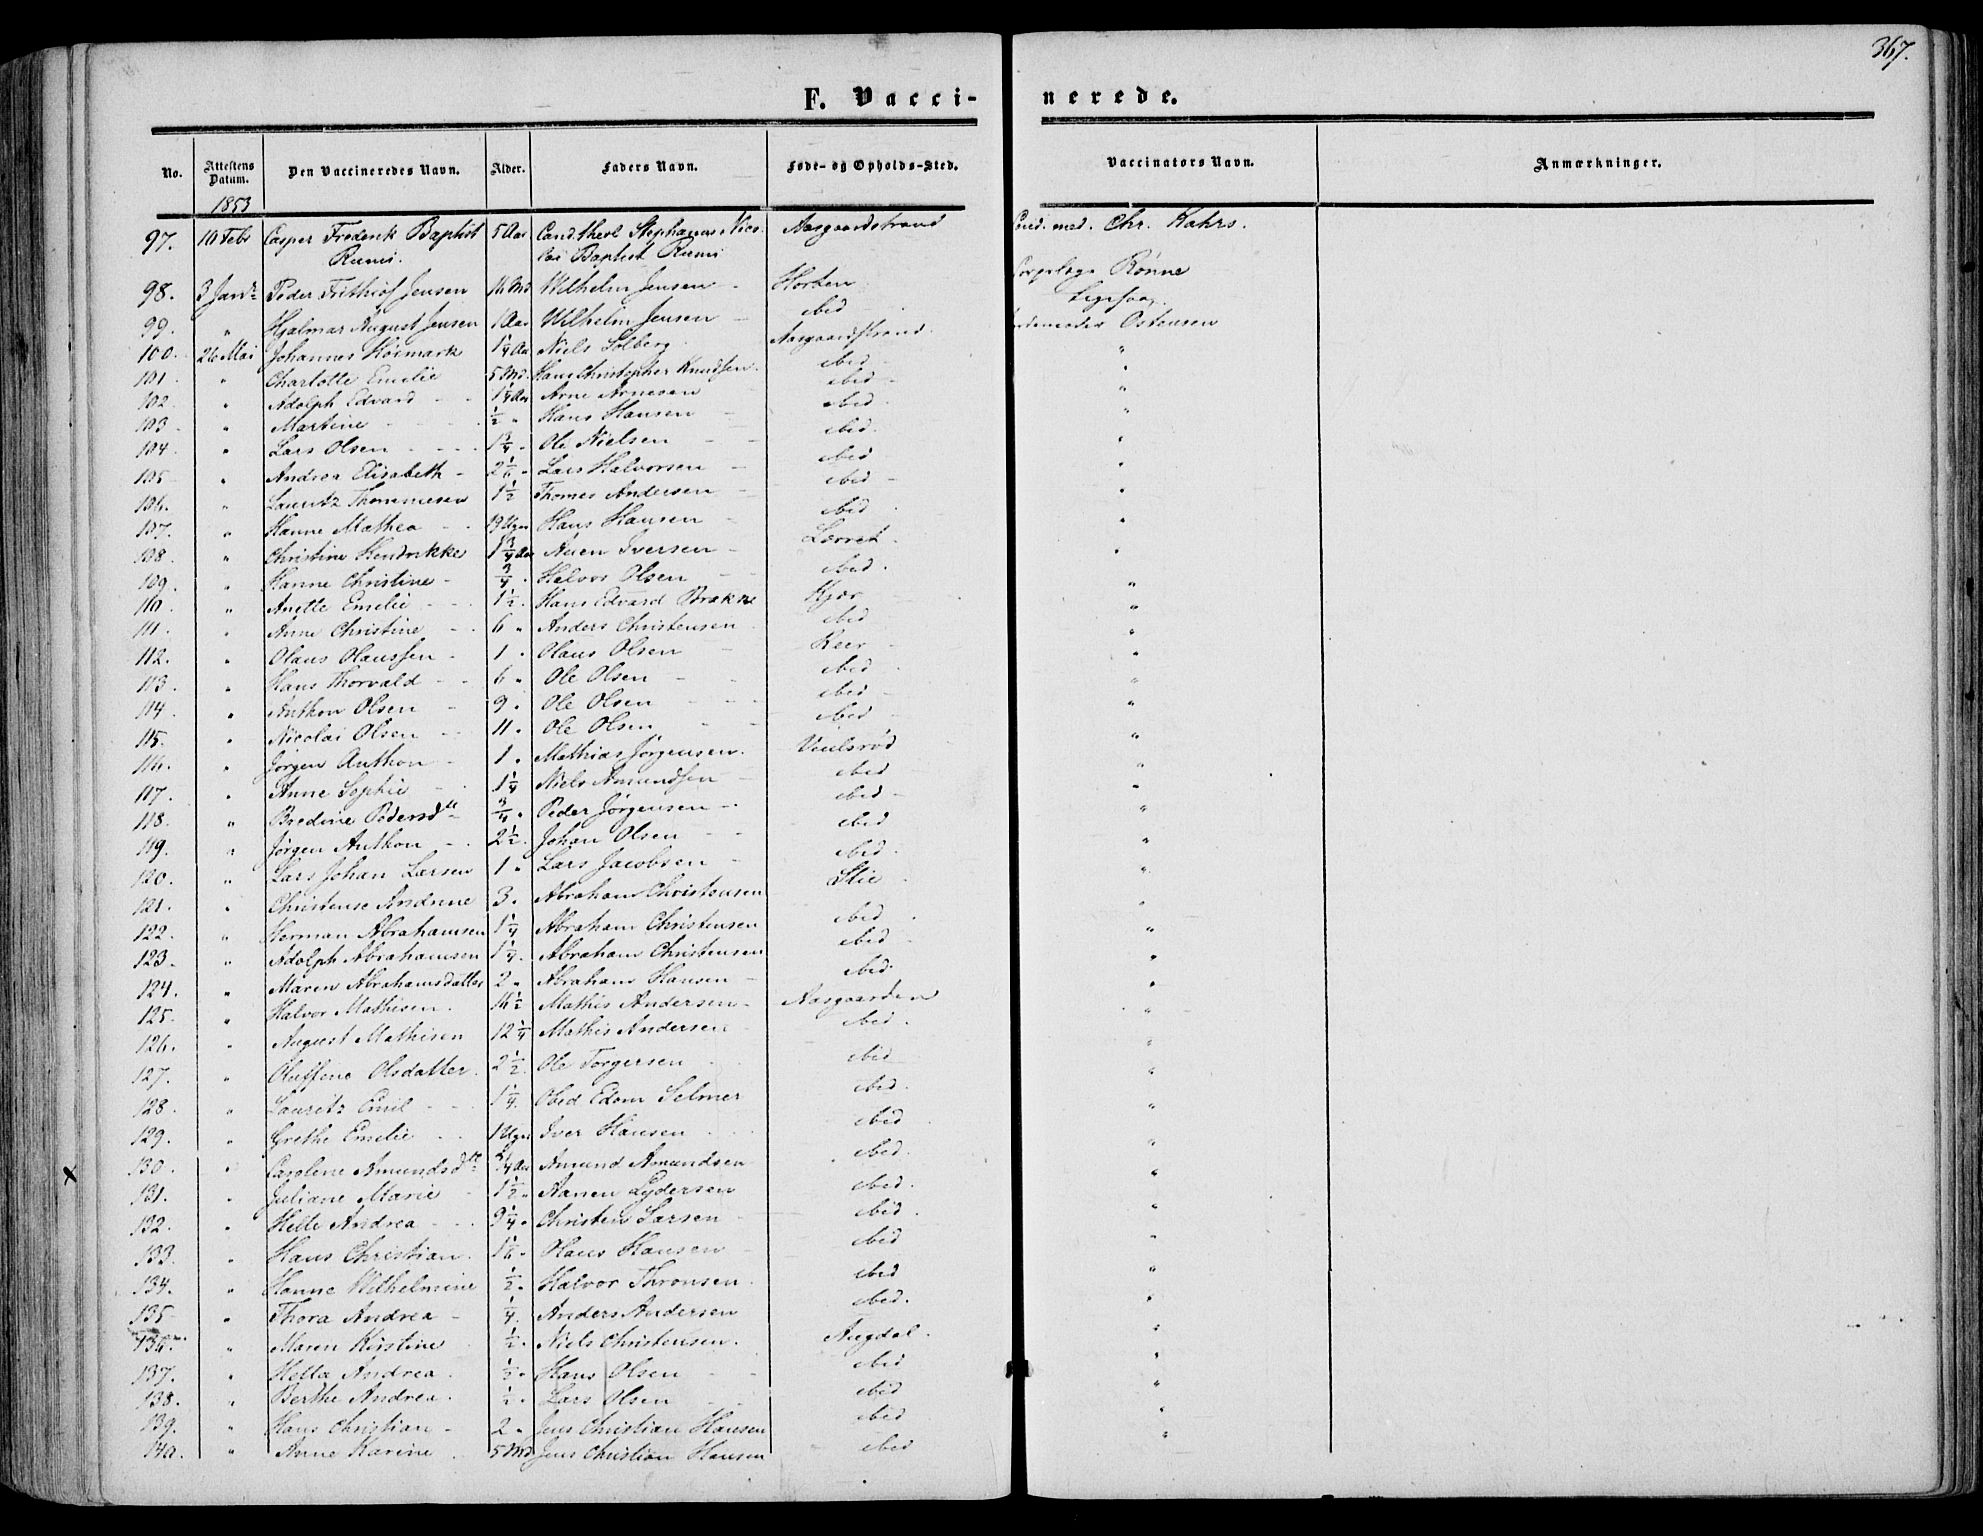 367.
F. Vaccinerede.
No. Attestens Datum. Den Vaccineredes Navn. Alder. Faders Navn. Føde- og Opholds-Sted. Vaccinators Navn. Anmærkninger.
1853
97. 10 Febr Casper Frederik Baptist 5 Aar Cand. theol Stephanus Nico- Aasgaardstrand med. Chr. Kahrs.
lai Baptist
98. 3 Peder Frithiof Jensen Md Wilhelm Jensen - Horten Rønne
99. " Hjalmar August Jensen 1 Aar Wilhelm Jensen - ibid
100. 26 Mai Johannes 1¼ Aar Niels Solberg Aasgaardstrand. Ostensen
101. " Charlotte Emelie 5 Md. Hans Christopher Knudsen. ibid - "
102. " Adolph Edvard - - 1¼ Aar Arne Arnesen ibid - "
103. " Martine - - - ½ " Hans Hansen - ibid - "
104. " Lars Olsen - - - 1¾ " Ole Nielsen - - ibid. "
105 " Andrea Elisabeth - 2 " Lars Halvorsen - ibid "
106. " Lauritz Thommesen 1½ Thomes Andersen - ibid - "
107. " Hanne Mathea - - 13 Uger Hans Hansen - ibid "
108. " Christine Hendrikke 1¾ Aar Iversen - ibid "
109. " Hanne Christine - ¾ " Halvor Olsen - ibid. "
110. " Anette Emelie - - 1½ " Hans Edvard "
111. " Anne Christine - - 6 " Anders Christensen ibid "
112. " Olaus Olaussen - 1 " Olaus Olsen - "
113. " Hans Thorvald - - 6 " Ole Olsen - - ibid "
114. " Anthon Olsen - 9 " Ole Olsen - - ibid - "
115. " Nicolai Olsen - - 11 " Ole Olsen - - ibid - "
116. " Jørgen Anthon - 1 " Mathias Jørgensen. "
117. " Anne Sophie - 1¼ Niels Amundsen - ibid "
118. " Bredine Pedersd.tr ¾ " Peder Jørgensen - ibid - "
119. " Jørgen Anthon - 2½ " Johan Olsen - - ibid "
120. " Lars Johan Larsen 1 " Lars Jacobsen - ibid. "
121. " Christense Andrine 3 " Abraham Christensen Slie "
122. " Herman Abrahamsen 1¼ Abraham Christensen ibid "
123. " Adolph Abrahamsen 1¼ " Abraham Christensen ibid - "
124. " Maren Abrahamsdatter 2 " Abraham Hansen - ibid. "
125. " Halvor Mathisen. Mathis Andersen - Aasgaarden "
126. " August Mathisen 12¼ Mathis Andersen ibid. "
127. " Olufine Olsdatter. 2½ " Ole Torgersen ibid "
128. " Lauritz Emil - - 1¼ " Obed Edom Selmer ibid. "
129. " Grethe Emelie - - Uger Iver Hansen - - ibid "
130. " Carolene Amundsd.tr Aar Amund Amundsen ibid. "
131. " Juliane Marie - 1½ " Aanen Lydersen ibid. "
132. " Helle Andrea - - 9¼ " Christen Larsen - ibid. "
133. " Hans Christian. 1 " Olaus Hansen - ibid "
134. " Hanne Wilhelmine ½ " Halvor Thronsen. ibid "
135 " Thora Andrea - ¼ " Anders Andersen ibid. "
136. " Maren Kirstine ½ " Niels Christensen. Augdal. "
137. " Hella Andrea. ½ " Hans Olsen - - ibid "
138. " Berthe Andrea. ½ " Lars Olsen - - ibid "
139. " Hans Christian - 2 " Jens Christian Hansen ibid "
140. " Anne Karine 5 Md Jens Christian Hansen ibid "